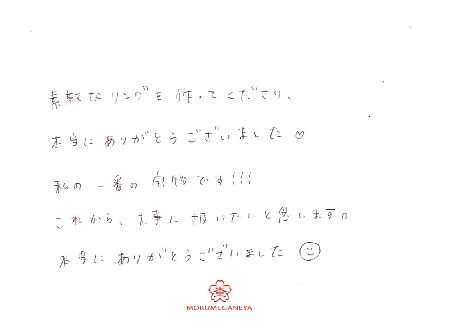 素敵なリングを作ってくださり、
本当にありがとうございました♡
私の一番の宝物です!!!
これから、大事に扱いたいと思います。
本当にありがとうございました ☺
MOKUMEGANEYA